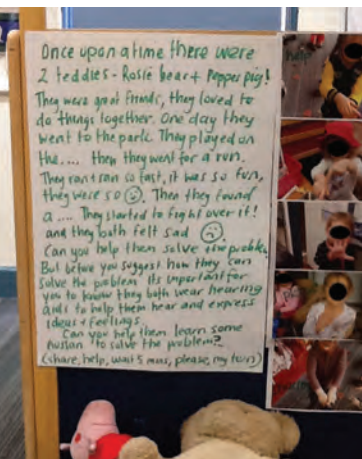 Once upon a time there were
2 teddies - Rosie bear + Pepper pig!
They were great friends, they loved to
do things together. One day they
went to the park. They played on
the.... then they went for a run.
They ran + ran so fast, it was so fun,
they were so ☺. Then they found
a .... They started to fight over it!
and they both felt sad ☹.
Can you help them solve the proble
But before you suggest how they can
solve the problem its important for
you to know they both wear hearing
aids to help them hear and express
ideas + feelings.
Can you help them learn some
to solve the problem?
(share, help, wait 5 mins, please, my turn)
help